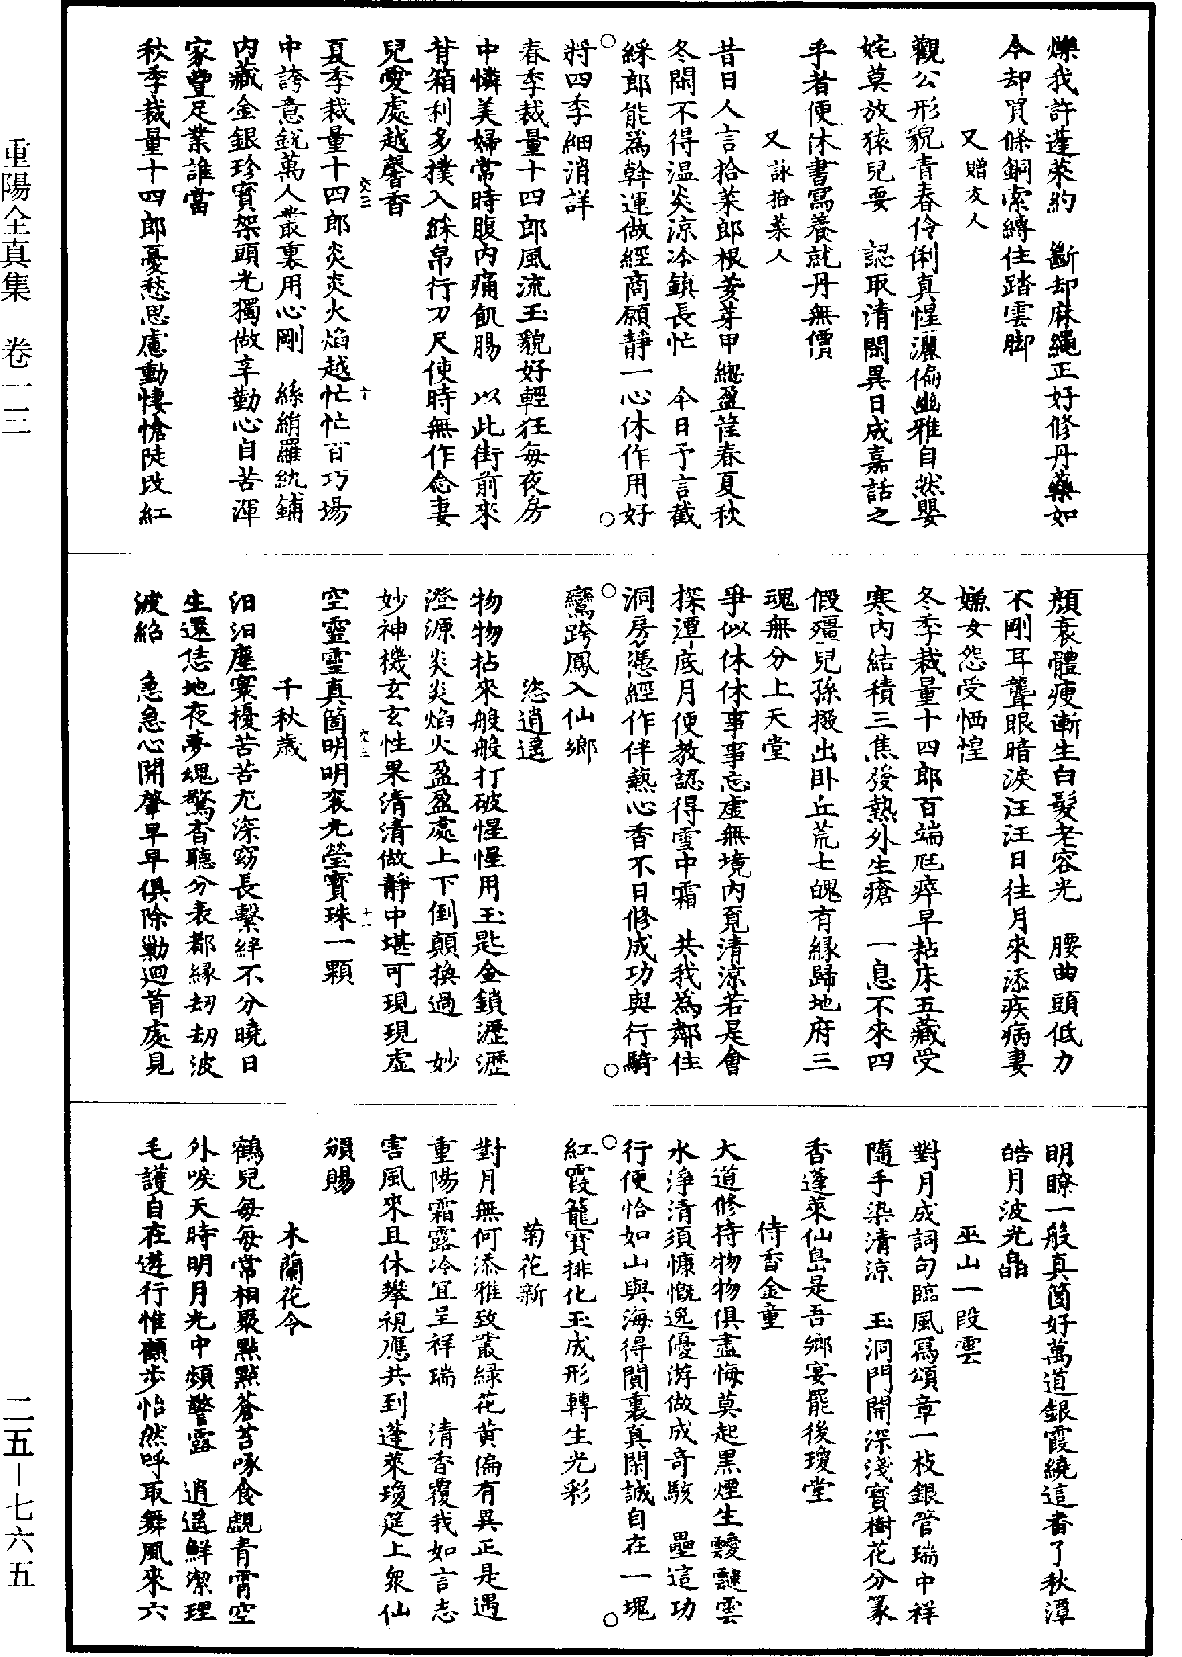 爍我許蓬萊約　斷却麻繩正好修丹藥如
今却買條銅索縛住踏雲脚
又贈友人
觀公形貌青春伶俐真惺灑偏幽雅自然嬰
姹莫放猿兒耍　認取清閑異日成嘉話之
乎者便休書寫養就丹無價
又詠拾菜人
昔日人言拾菜郎根荄芽甲總盈筐春夏秋
冬閑不得温炎凉冷鎮長忙　今日予言截
綵郎能爲幹運做經商願靜一心休作用好
將四季細消詳
春季裁量十四郎風流玉貌好輕狂每夜房
中憐美婦常時腹内痛飢腸　以此街前來
背箱利多撲入綵帛行刀尺使時無作念妻
兒愛處越馨香
夏季裁量十四郎炎炎火焰越忙忙百巧場
中誇意銳萬人叢裏用心剛　絲綃羅紈鋪
内藏金銀珍寳架頭光獨做辛勤心自苦渾
家豐足業誰當
秋季裁量十四郎憂愁思慮動悽愴陡改紅
顔衰體瘦漸生白髮老容光　腰曲頭低力
不剛耳聾眼暗淚汪汪日往月來添疾病妻
嫌女怨受恓惶
冬季裁量十四郎百端尫瘁早粘床五藏受
寒内結積三焦發熱外生瘡　一息不來四
假殭兒孫搬出卧丘荒七魄有緣歸地府三
魂無分上天堂
爭似休休事事忘虛無境内覓清凉若是會
探潭底月便教認得雪中霜　共我爲鄰住
洞房憑經作伴爇心香不日修成功與行騎
鸞跨鳳入仙鄉
恣逍遥
物物拈來般般打破惺惺用玉匙金鎖瀝瀝
澄源炎炎焰火盈盈處上下倒顛换過　妙
妙神機玄玄性果清清做静中堪可現現虛
空靈靈真箇明明衮光瑩寳珠一顆
千秋歲
汨汨塵寰擾苦苦尤深窈長繫絆不分曉日
生還恁地夜夢魂驚杳聽分表都緣刧刧波
波紹　急急心開肇早早俱除勦迴首處見
明瞭一般真箇好萬道銀霞繞這畨了秋潭
皓月波光晶
巫山一段雲
對月成詞句臨風寫頌章一枝銀管瑞中祥
隨手染清凉　玉洞門開深淺寳樹花分篆
香蓬萊仙島是吾鄉宴罷後瓊堂
侍香金童
大道修持物物俱盡悔莫起黑煙生靉靆雲
水淨清須慷慨逸優游做成奇駭　壘這功
行便恰如山與海得閒裏真閑誠自在一塊
紅霞籠寳排化玉成形轉生光彩
菊花新
對月無何添雅致叢緑花黄偏有異正是遇
重陽霜露冷宜呈祥瑞　清香覆我如言志
害風來且休攀視應共到蓬萊瓊筵上衆仙
頒賜
木蘭花令
鶴兒每每常相聚點點蒼苔啄食覰青霄空
外唳天時明月光中頻警露　逍遥鮮潔理
毛護自在遊行惟顧步怡然呼取舞風來六
重陽全真集　卷一三
二五－七六五